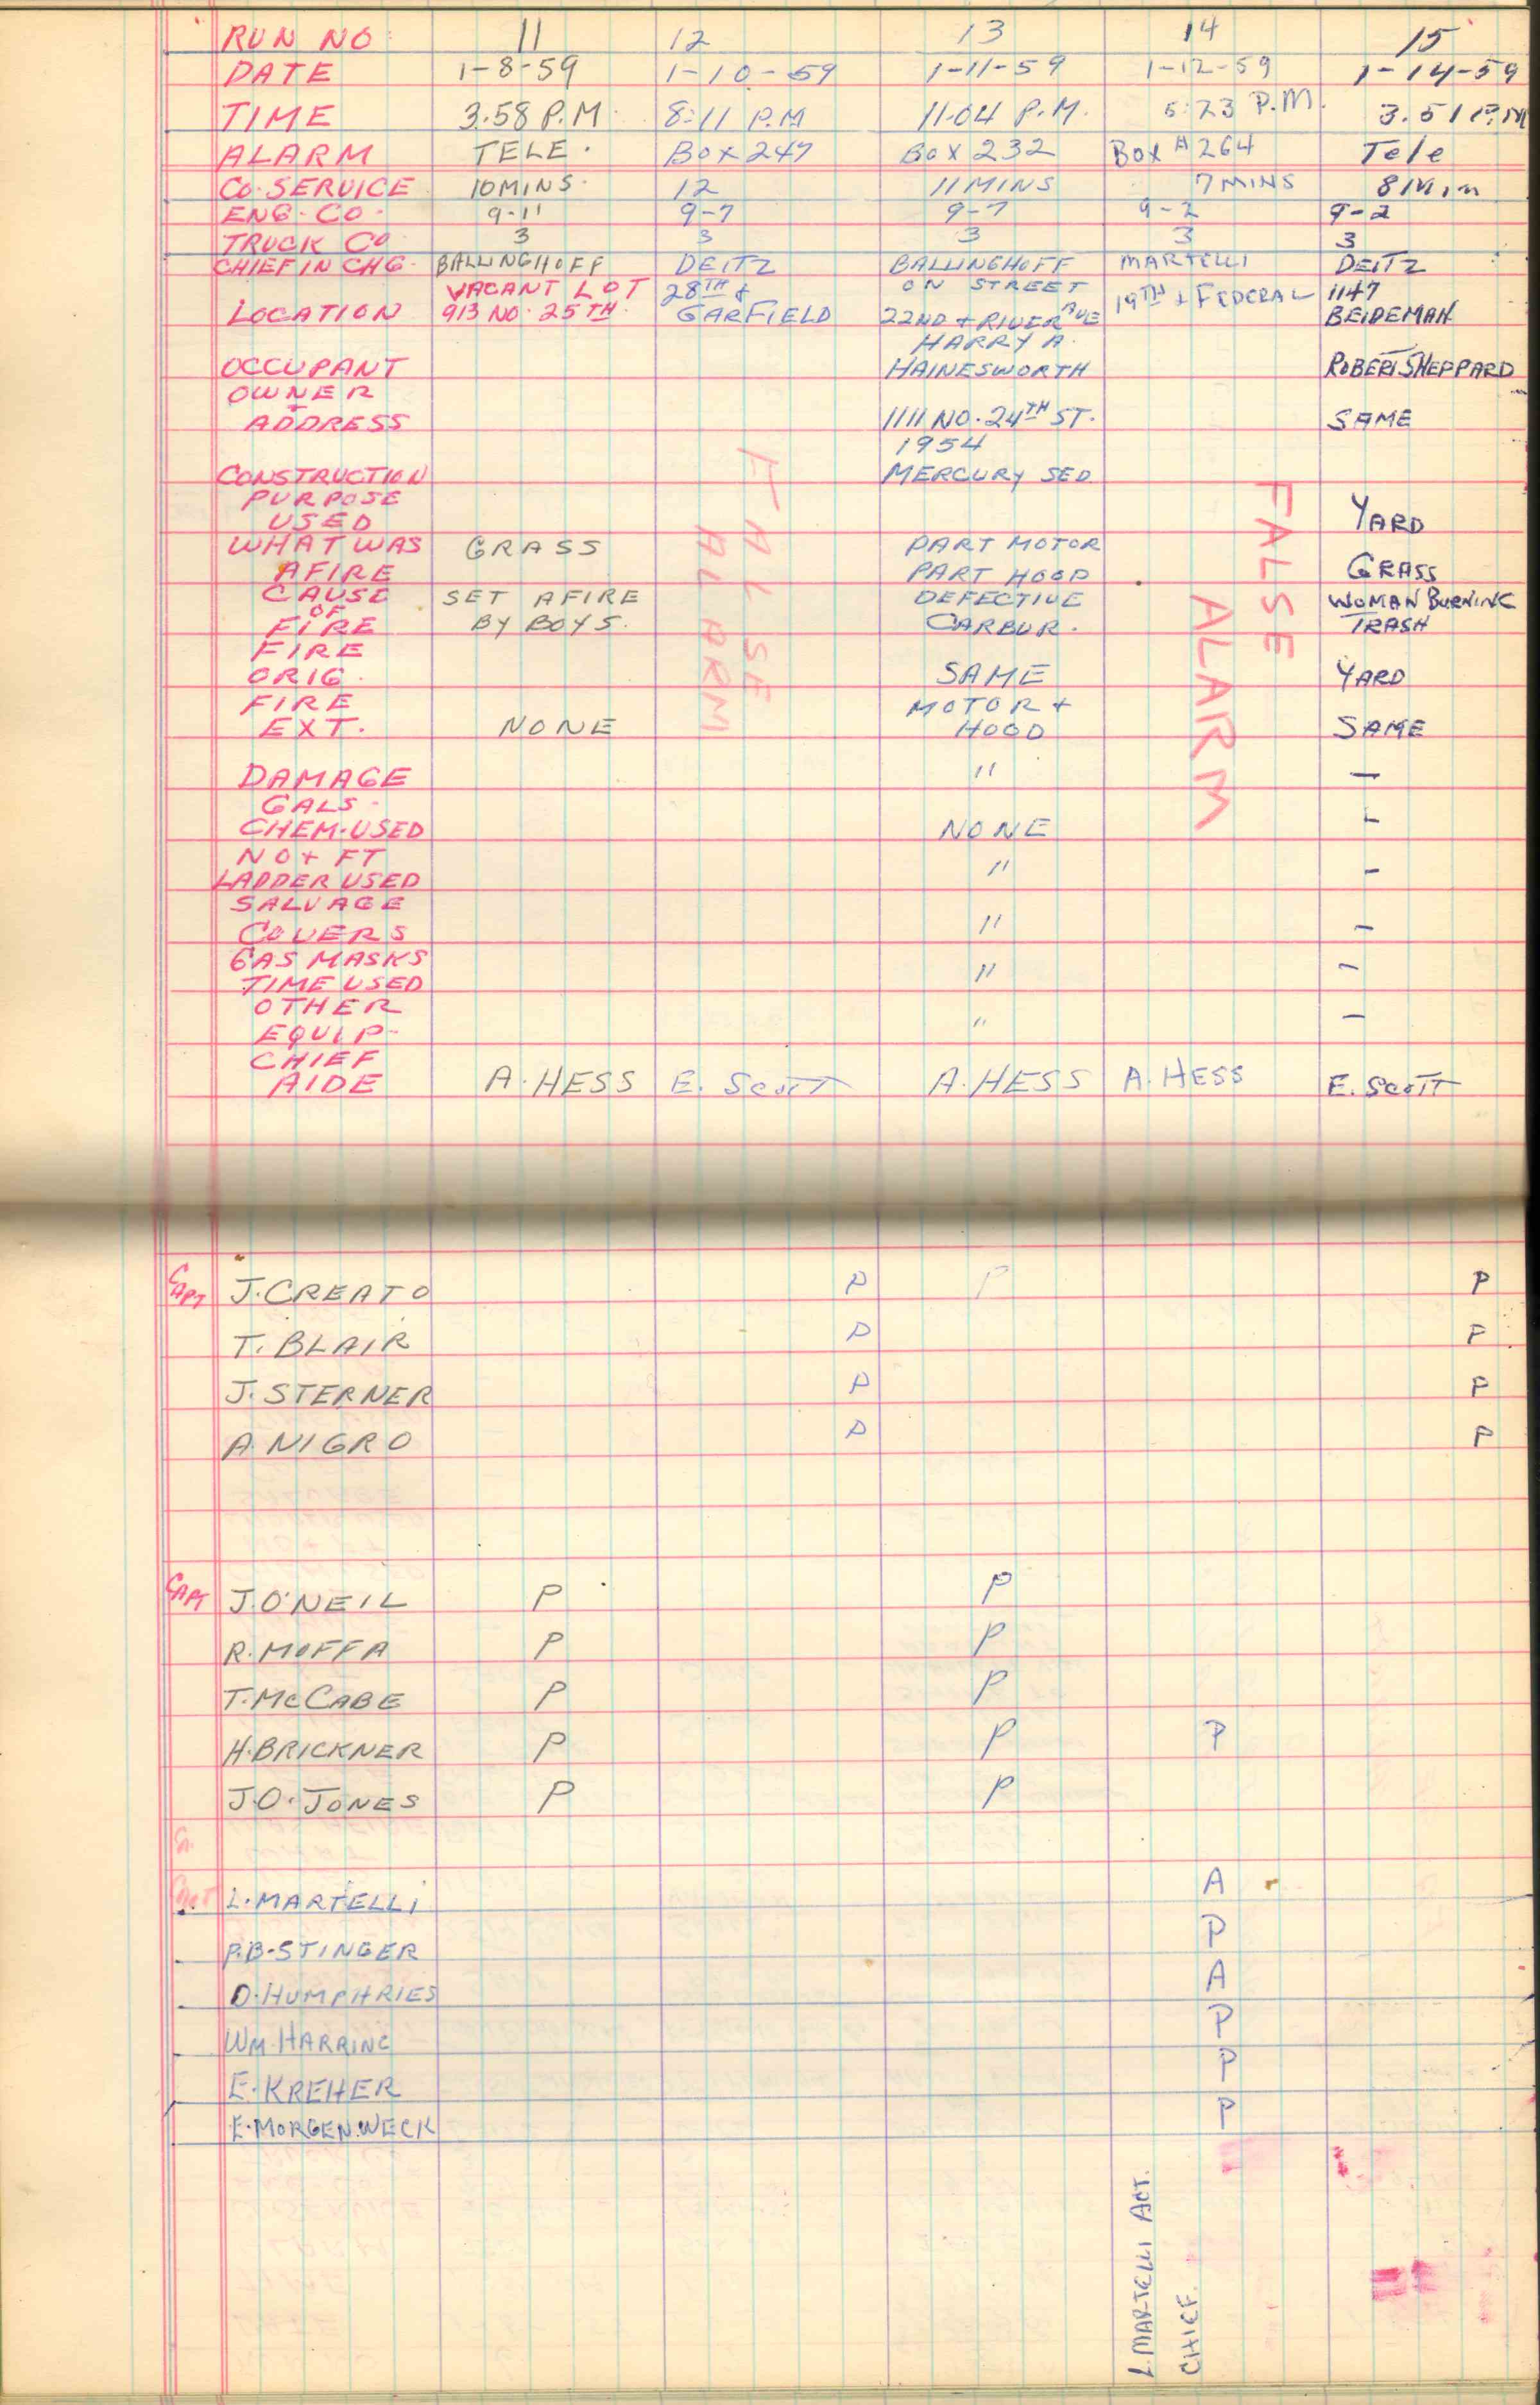 RUN NO 11 12 13 14 15
DATE 1-8-59 1-10-59 1-11-59 1-12-59 1-14-59
TIME 3.58 P.M. 8:11 P.M 11.04 P.M. 5:23 P.M. 3.51 P.M
ALARM TELE. BOX 247 BOX 232 BOX # 264 Tele
CO. SERVICE 10 MINS. 12 11 MINS 7 MINS 8 Min
ENG. CO. 9-11 9-7 9-7 9-2 9-2
TRUCK CO 3 3 3 3 3
CHIEF IN CHG. BALLINGHOFF DEITZ BALLINGHOFF MARTELLI DEITZ
VACANT LOT 28TH + ON STREET 19TH + FEDERAL 1147
LOCATION 913 NO. 25TH. GARFIELD 22ND + RIVER AVE BEIDEMAN
HARRY A.
OCCUPANT HAINESWORTH ROBERT SHEPPARD
OWNER
+
ADDRESS 1111 NO. 24TH ST. SAME
1954
CONSTRUCTION MERCURY SED
PURPOSE
USED YARD
WHAT WAS GRASS PART MOTOR
AFIRE PART HOOD GRASS
CAUSE SET AFIRE DEFECTIVE WOMAN BURNING
OF
FIRE BY BOYS. CARBUR. TRASH
FIRE
ORIG. SAME YARD
FIRE MOTOR +
EXT. NONE HOOD SAME
FALSE
ALARM
FALSE
ALARM
DAMAGE " —
GALS.
CHEM. USED NONE -
NO + FT
LADDER USED " -
SALVAGE
COVERS " -
GAS MASKS
TIME USED " -
OTHER
EQUIP- " -
CHIEF
AIDE A. HESS E. Scott A. HESS A. HESS E. Scott
CAPT J. CREATO P P P
T. BLAIR P P
J. STERNER P P
A. NIGRO P P
CAPT J. O'NEIL P P
R. MOFFA P P
T. McCABE P P
H. BRICKNER P P P
J.O. JONES P P
L. MARTELLI A
P.B. STINGER P
D. HUMPHRIES A
WM. HARRING P
E. KREHER P
E. MORGENWECK P
L. MARTELLI ACT.
CHIEF.